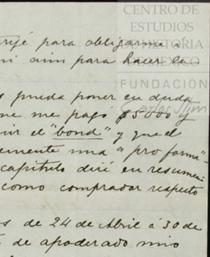 CENTRO DE
ESTUDIOS
HISTORIA
para obligarme a
ni aun para hacer la
FUNDACIÓN
pueda poner en duda
me pagó $5000 y
el "bond" y que el
una "pro forma"
capítulo diré en resumen
como comprador respecto
de 24 de Abril á 30 de
de apoderado mío